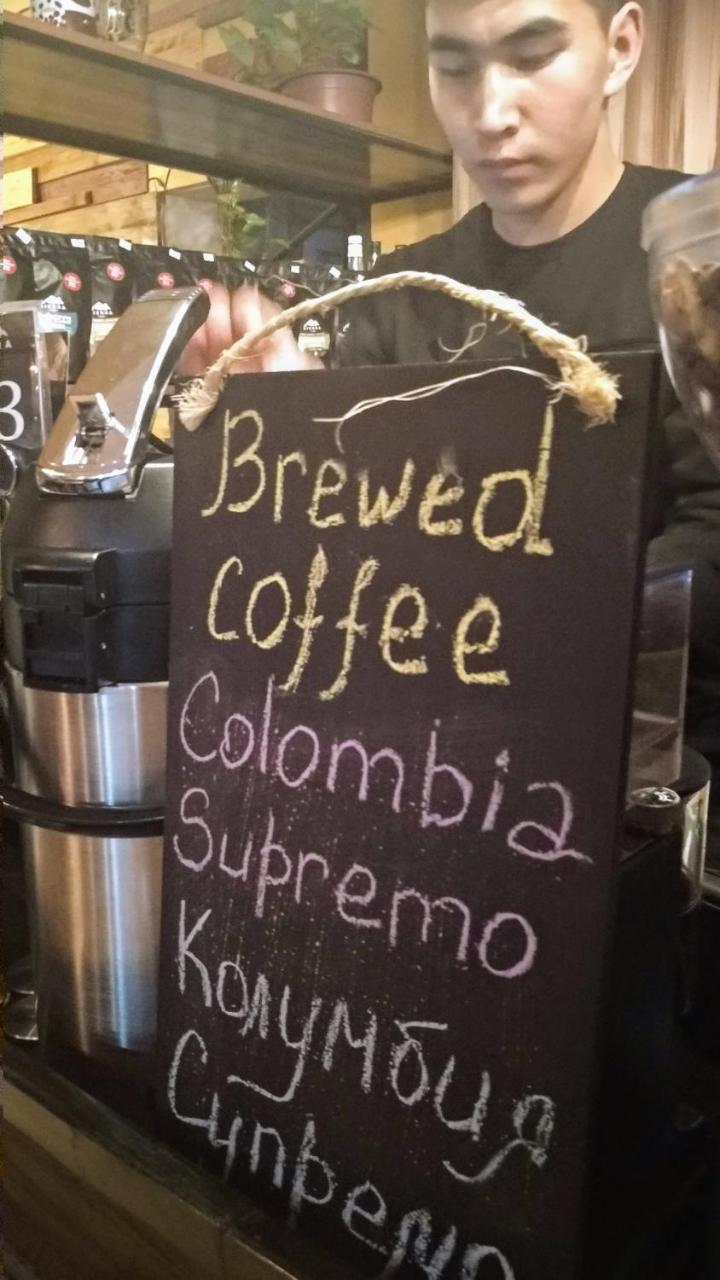 3
Brewed
coffee
Colombia
Supremo
Колумбия
Супремо